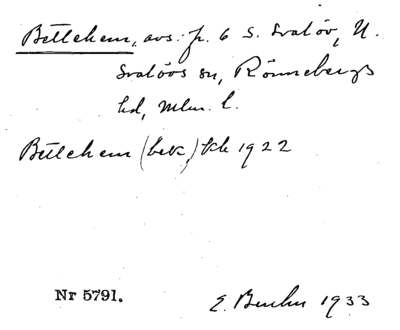 Betlehem, avs. fr. 6 S. Svalöv, N.
Svalövs sn, Rönnebergs
hd, Mlm. l.
Betlehem (bek.) kb 1922
Nr 5791.
E. 1933